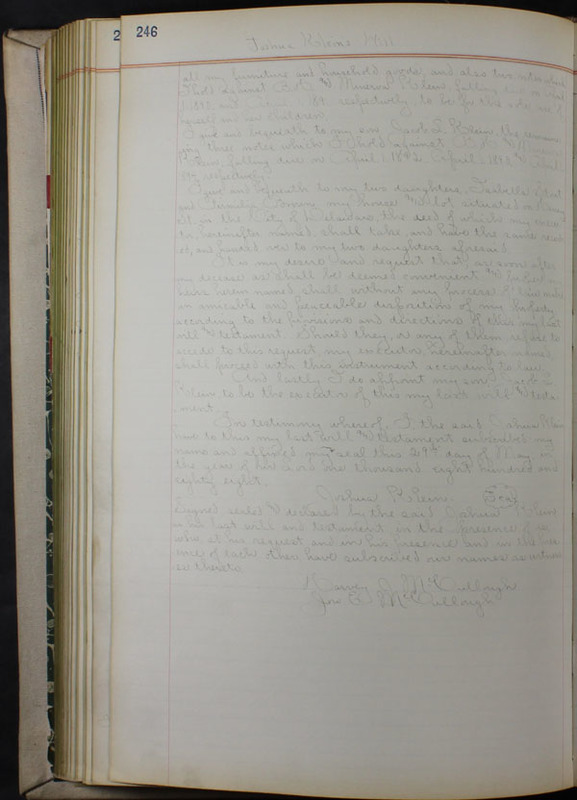 2
246
Joshua Kleins Will
all my furniture and household goods, and also two notes which
I hold against & Minerva Klein, falling due on
1890 and 1891 respectively, to be for the sole use of
herself and her children.
I give and bequeath to my son, Jacob S. Klein, the remain
ing three notes which I hold against &
Klein falling due on April 1, 1892, April 1, 1893 & April
respectively.
I give and bequeath to my two daughters, Isabella
and my house & lot situated on
St, in the City of Delaware, the deed of which my execu
tor, hereinafter named, shall take, and have the same record
ed, and handed over to my two daughters aforesaid.
It is my desire and request that, as soon after
my decease as shall be deemed convenient my
heirs herein named shall without any process of law make
an amicable and peaceable disposition of my property
according to the provisions and directions of this my last
will & testament. Should they, or any of them refuse to
accede to this request, my executor, hereinafter named
shall proceed with this instrument according to law.
And lastly I do appoint my son Jacob S.
Klein, to be the executor of this my last will & testa
ment.
In testimony whereof, I, the said Joshua Klein
have to this my last will & testament subscribed my
name and affixed my seal this 29th day of May, in
the year of our Lord one thousand eight hundred and
eighty eight.
Joshua Klein. Seal
Signed sealed & declared by the said Joshua Klein
as his last will and testament, in the presence of us
who, at his request and in his presence and in the pres
ence of each other have subscribed our names as witness
es thereto.
Harvey J. McCullough
Jno McCullough